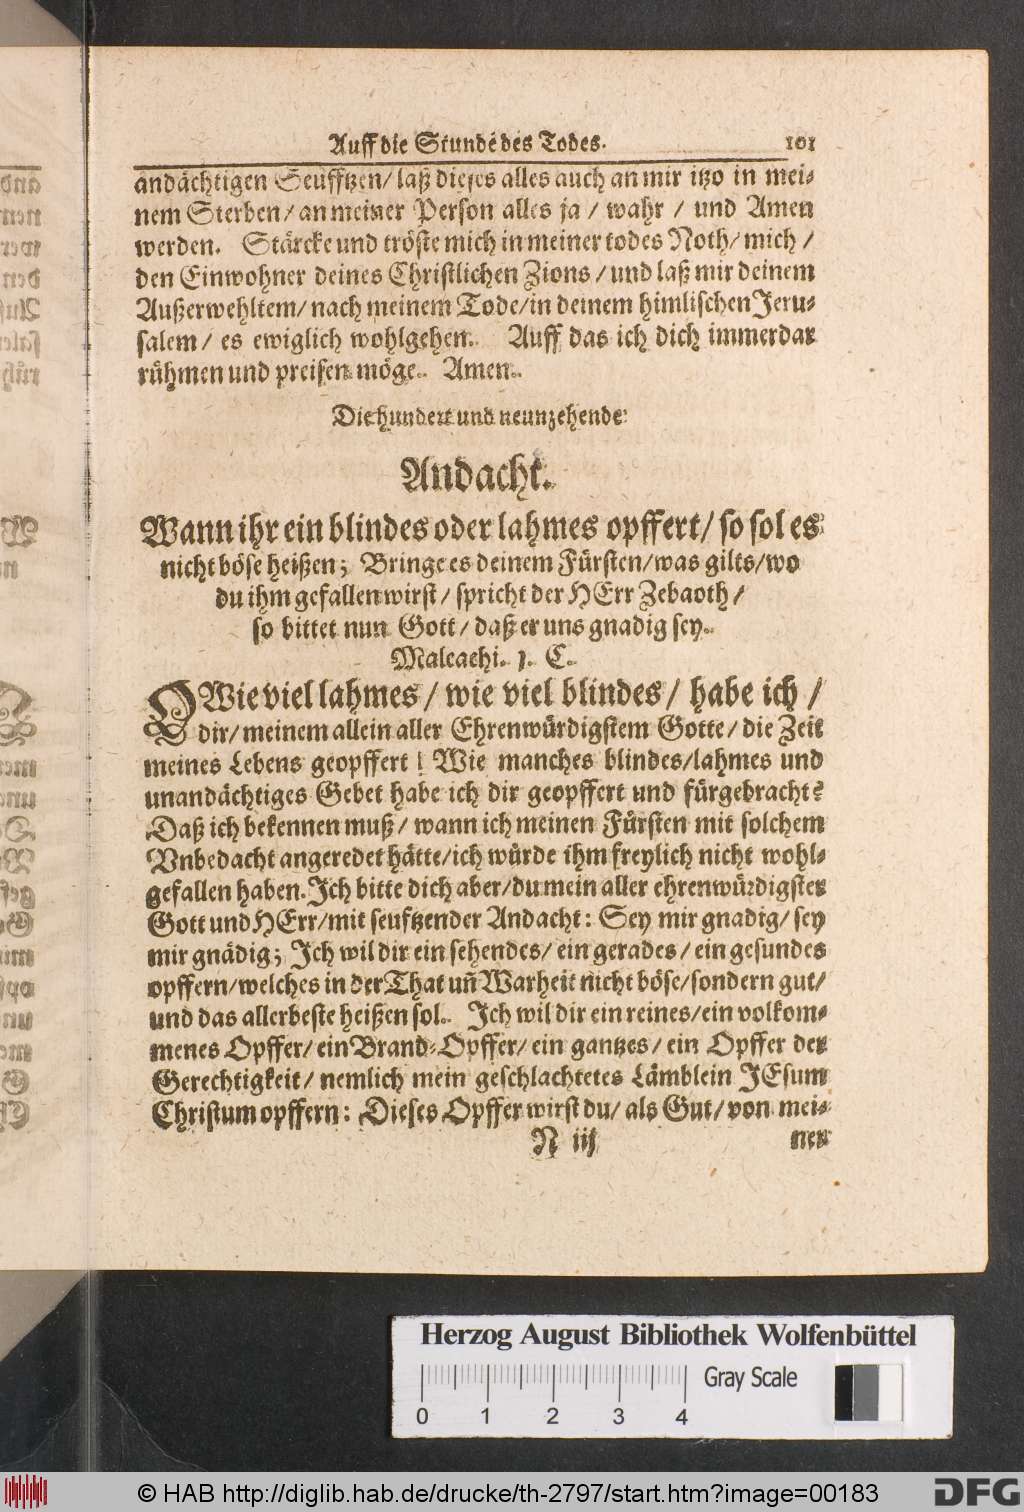 Auff die Stunde des Todes. 101
andächtigen Seufftzen/ laß dieses alles auch an mir itzo in mei-
nem Sterben/ an meiner Person alles ja / wahr / und Amen
werden. Stärcke und tröste mich in meiner todes Noth/ mich /
den Einwohner deines Christlichen Zions / und laß mir deinem
Außerwehltem/ nach meinem Tode/ in deinem himlischen Jeru-
salem / es ewiglich wohlgehen. Auff das ich dich immerdar
rühmen und preisen möge. Amen.
Die hundert und neunzehende
Andacht.
Wann ihr ein blindes oder lahmes opffert/ so sol es
nicht böse heißen; Bringe es deinem Fürsten/ was gilts/ wo
du ihm gefallen wirst / spricht der HErr Zebaoth /
so bittet nun Gott / daß er uns gnadig sey.
Maleachi. 1. C.
O Wie viel lahmes / wie viel blindes / habe ich /
dir/ meinem allein aller Ehrenwürdigstem Gotte / die Zeit
meines Lebens geopffert! Wie manches blindes/lahmes und
unandächtiges Gebet habe ich dir geopffert und fürgebracht?
Daß ich bekennen muß / wann ich meinen Fürsten mit solchem
Vnbedacht angeredet hätte/ ich würde ihm freylich nicht wohl-
gefallen haben. Ich bitte dich aber/ du mein aller ehrenwürdigster
Gott und HErr/ mit seuftzender Andacht: Sey mir gnadig/ sey
mir gnädig; Ich wil dir ein sehendes/ ein gerades / ein gesundes
opffern/ welches in der That uñ Warheit nicht böse/ sondern gut/
und das allerbeste heißen sol. Ich wil dir ein reines/ ein volkom-
menes Opffer/ ein Brand-Opffer/ ein gantzes / ein Opffer der
Gerechtigkeit / nemlich mein geschlachtetes Lämblein JEsum
Christum opffern: Dieses Opffer wirst du/ als Gut/ von mei-
N iij ner
Herzog August Bibliothek Wolfenbüttel
Gray Scale
0 1 2 3 4
© HAB http://diglib.hab.de/drucke/th-2797/start.htm?image=00183 DFG